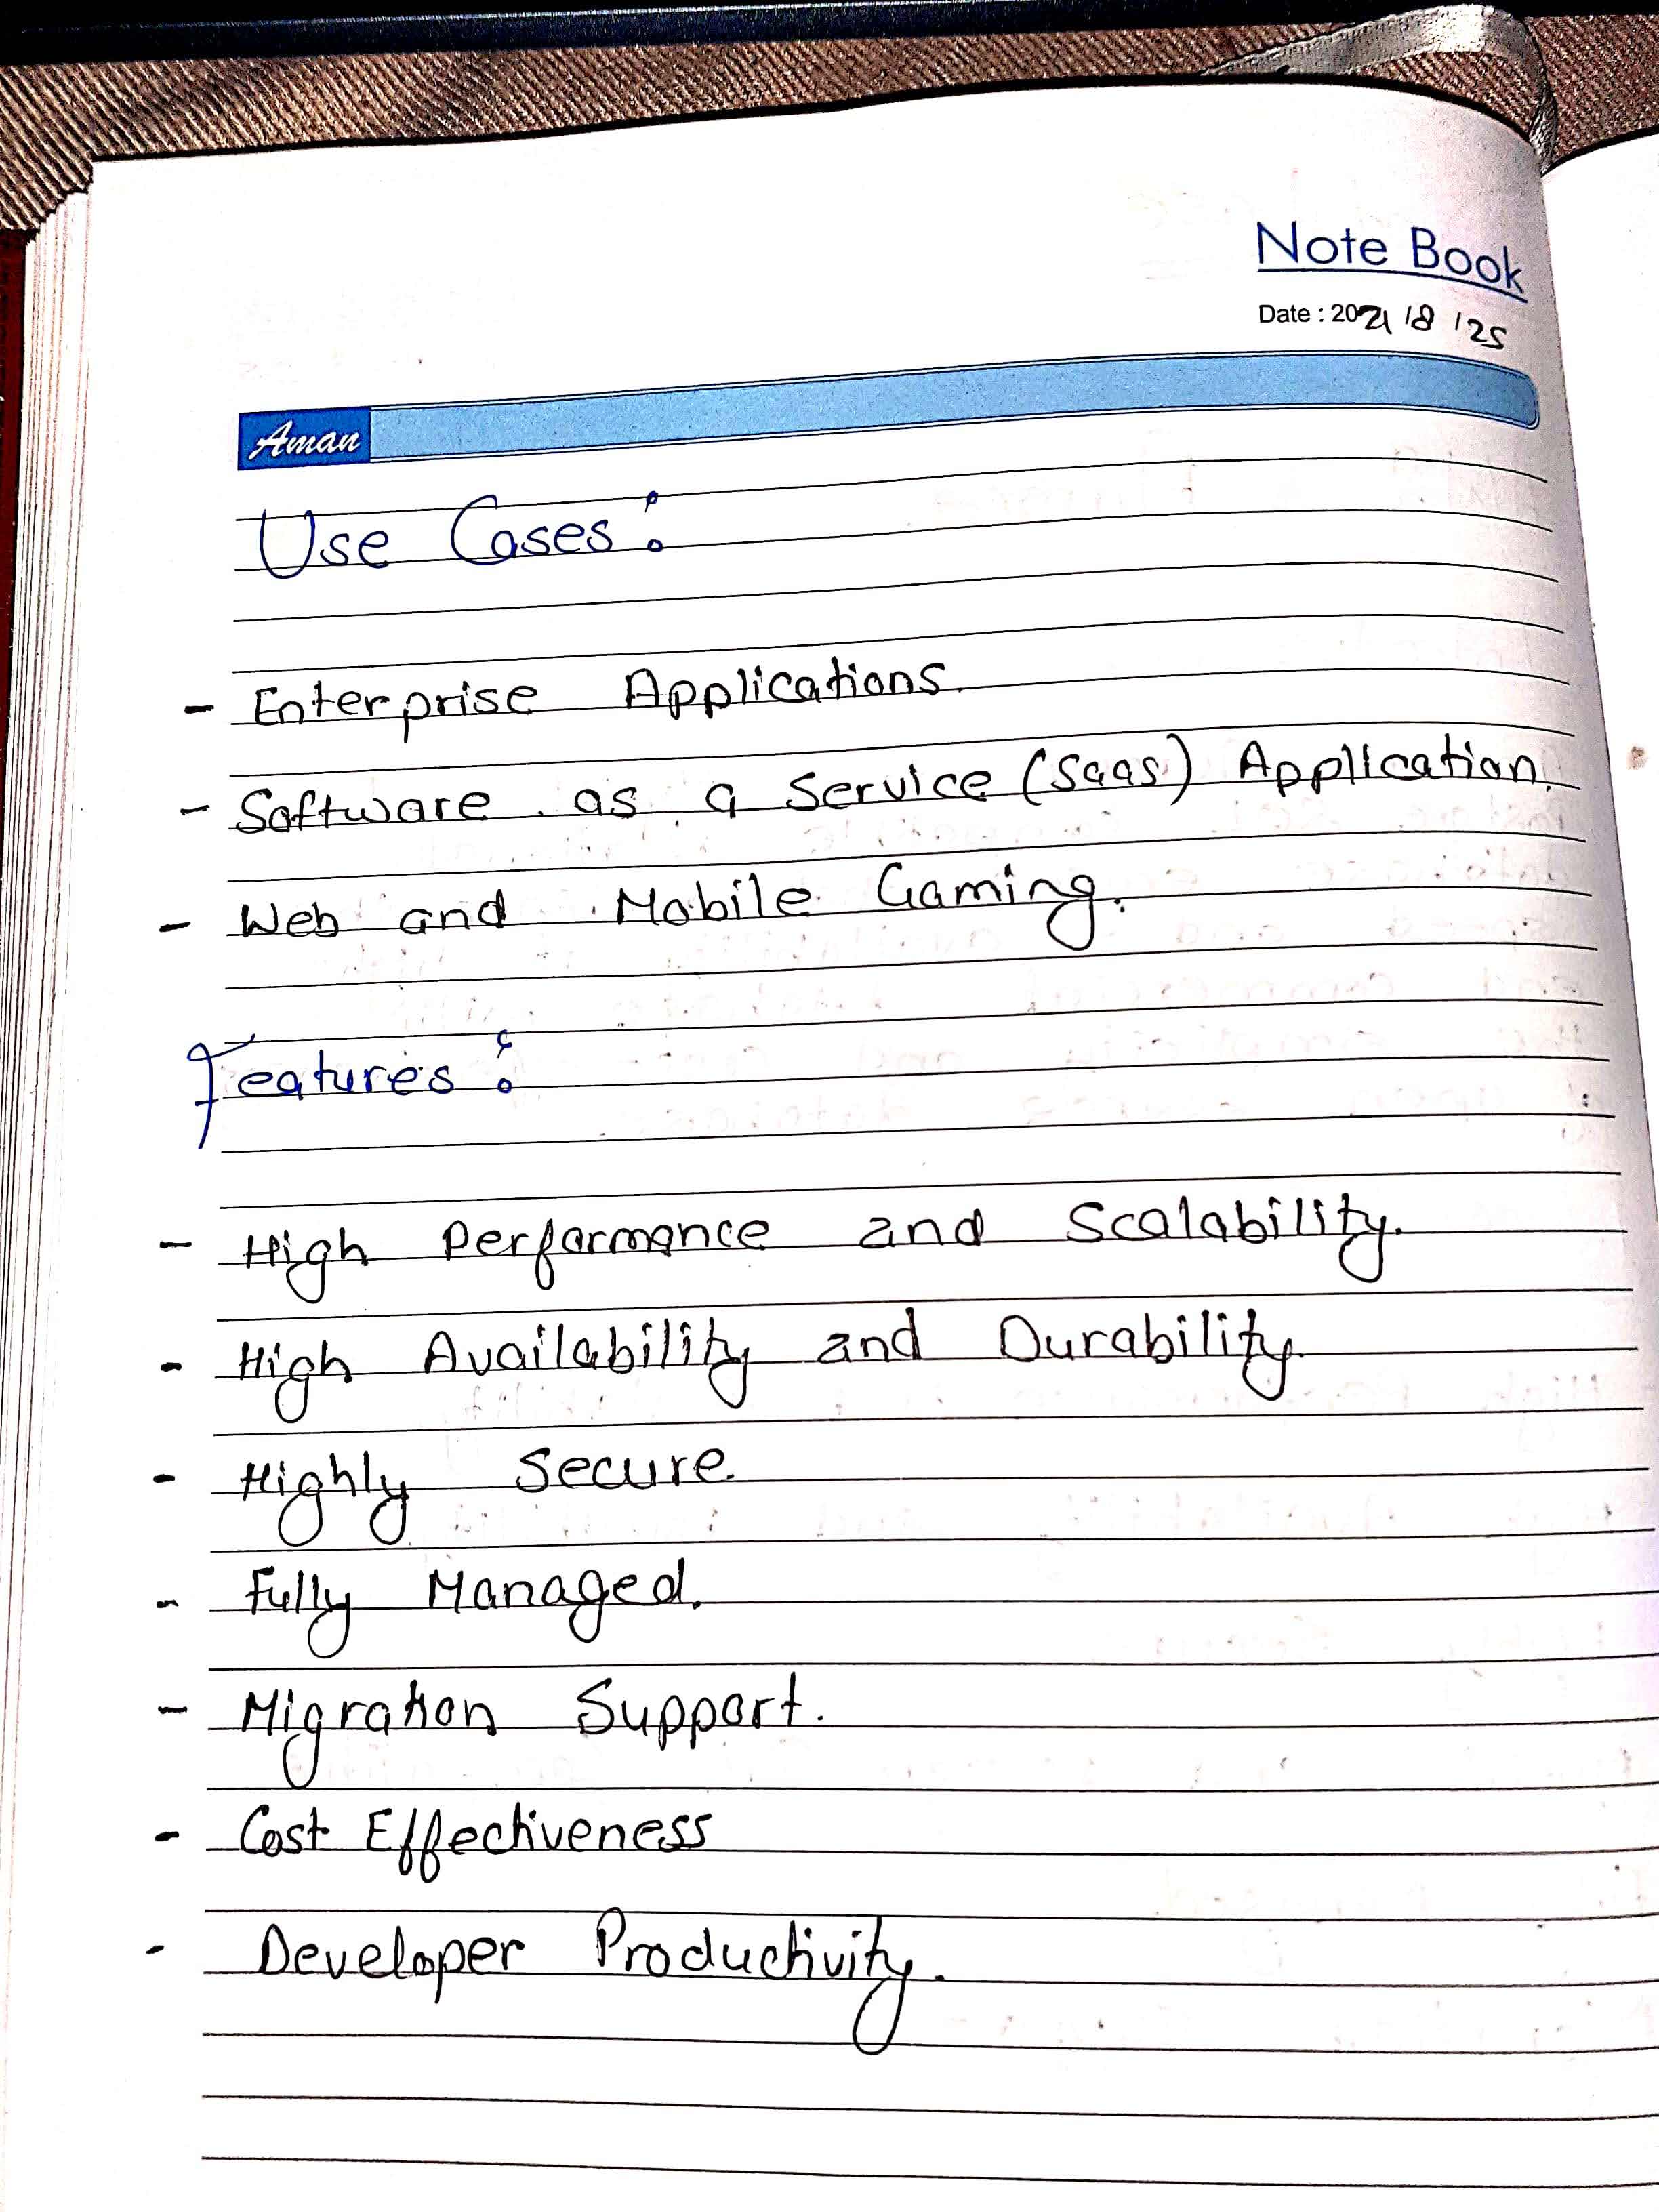 Note Book
Date : 2021 / 8 / 25
Aman
Use Cases :
- Enterprise Applications.
- Software as a Service (Saas) Application.
- Web and Mobile Gaming.
Features :
- High Performance and Scalability.
- High Availability and Durability.
- Highly Secure.
- Fully Managed.
- Migration Support.
- Cost Effectiveness
- Developer Productivity.